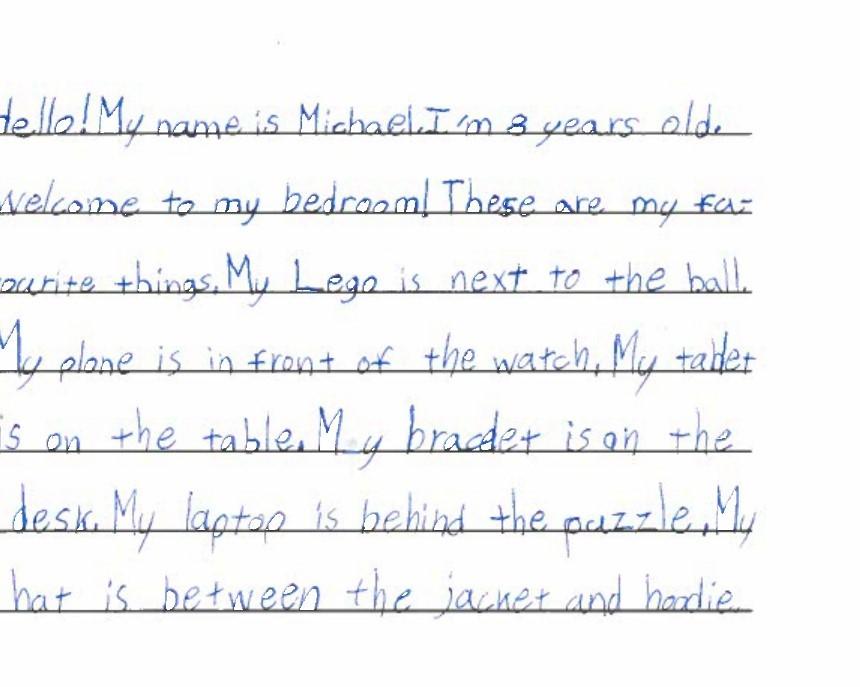 Hello! My name is Michael. I'm 8 years old.
Welcome to my bedroom! These are my fa-
vourite things. My Lego is next to the ball.
My plane is in front of the watch. My tablet
is on the table. My bracelet is on the
desk. My laptop is behind the puzzle. My
hat is between the jacket and hoodie.